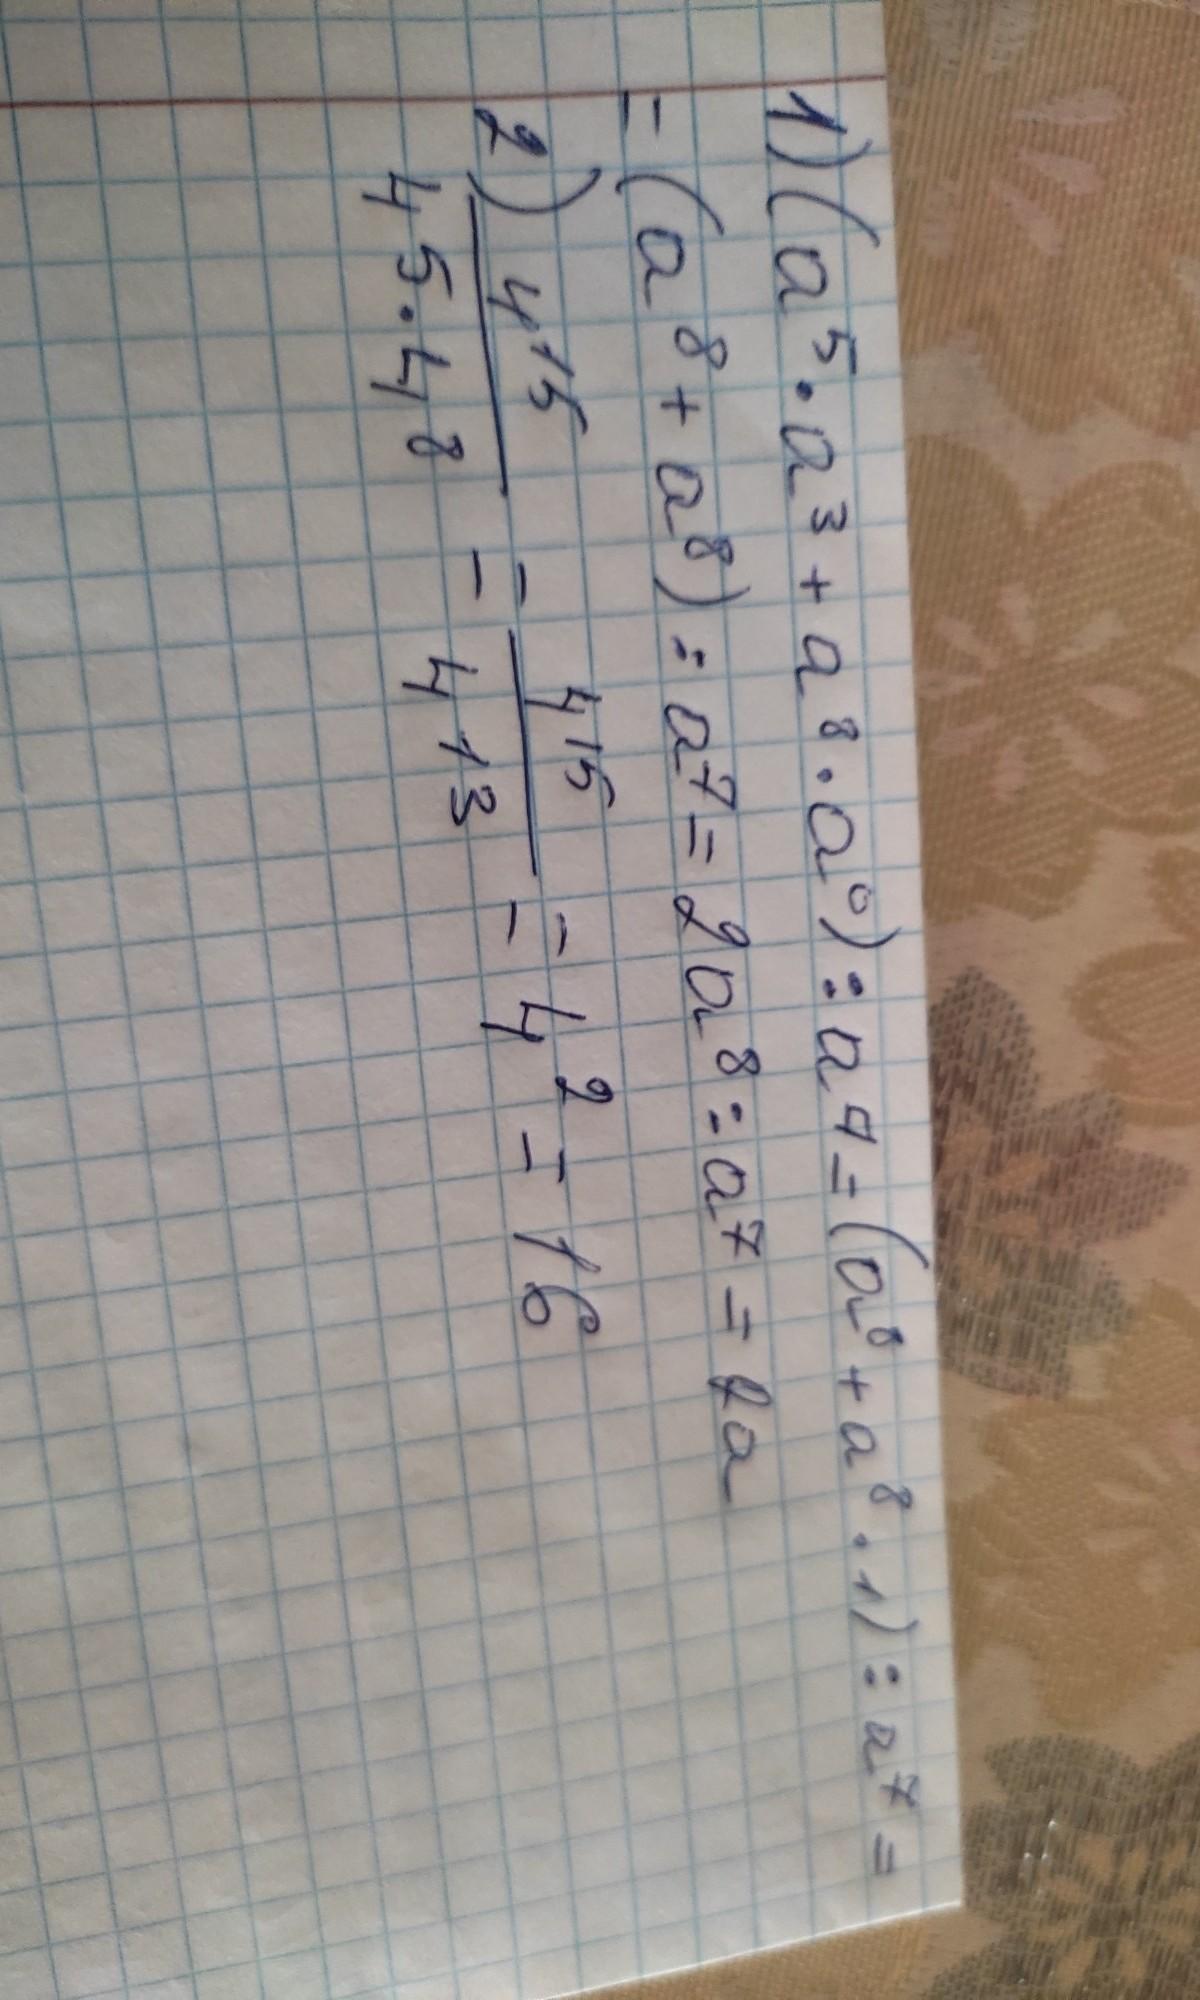 1) (a⁵ · a³ + a⁸ · a⁰) : a⁷ = (a⁸ + a⁸ · 1) : a⁷ =
= (a⁸ + a⁸) : a⁷ = 2a⁸ : a⁷ = 2a
2) 4¹⁵/4⁵·4⁸ = 4¹⁵/4¹³ = 4² = 16